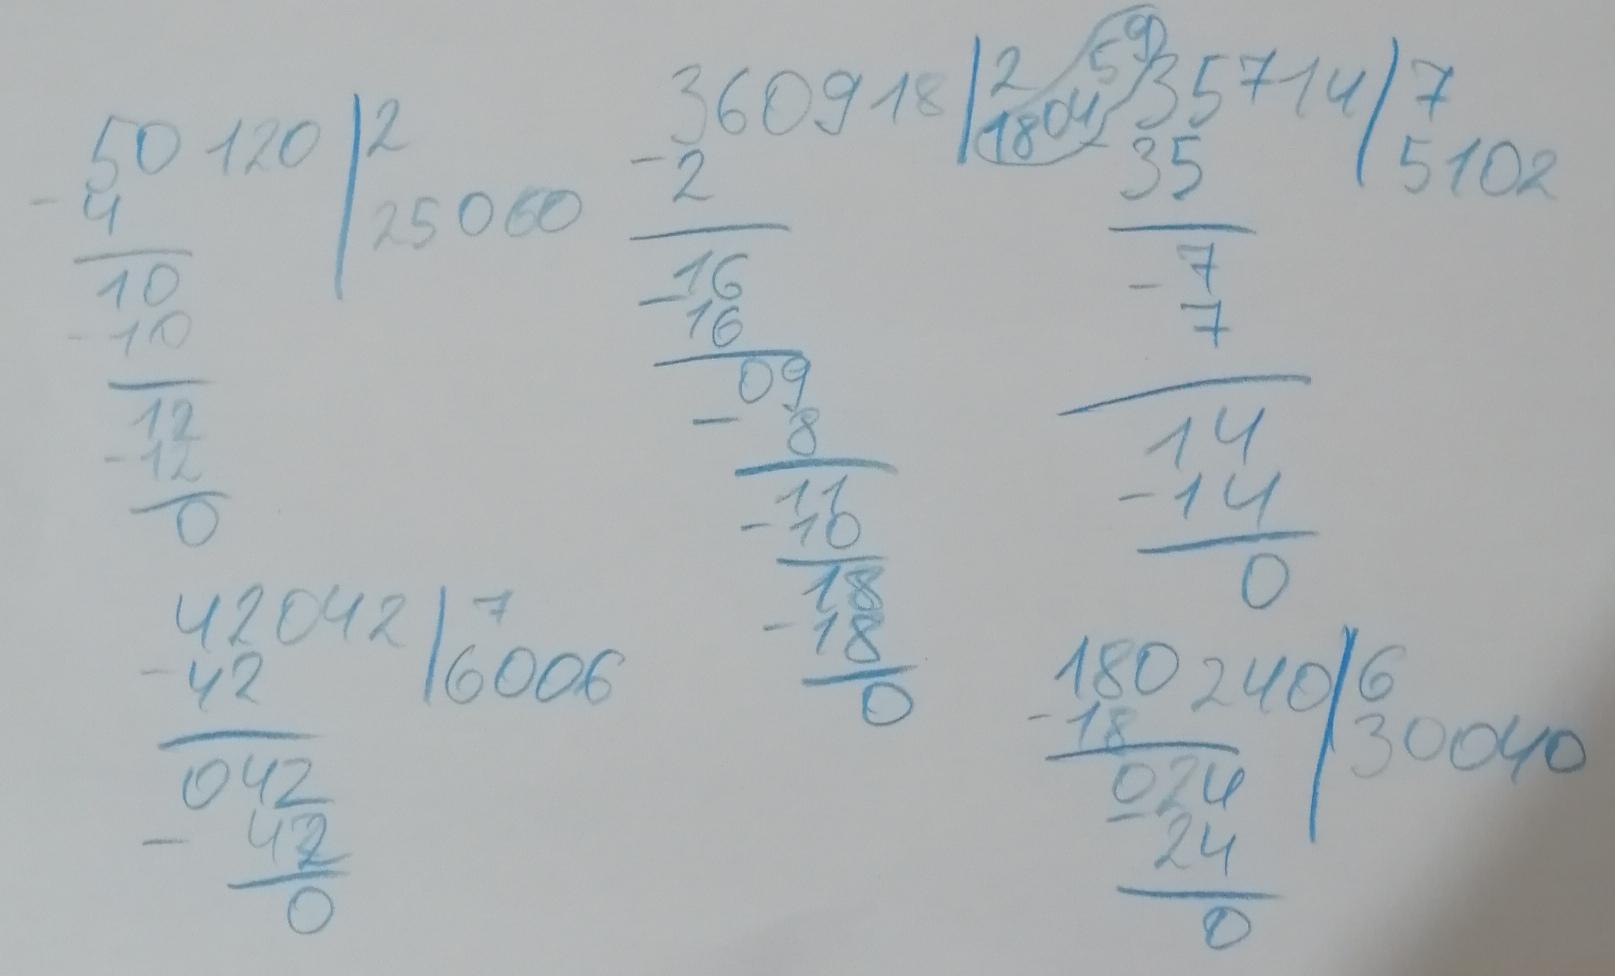 50120 | 2
- 4
25060
10
- 10
12
- 12
0
360918 | 2
180459
- 2
16
- 16
09
- 8
11
- 10
18
- 18
0
35714 | 7
- 35
5102
7
- 7
14
- 14
0
42042 | 7
- 42
6006
042
- 42
0
180240 | 6
- 18
30040
024
- 24
0